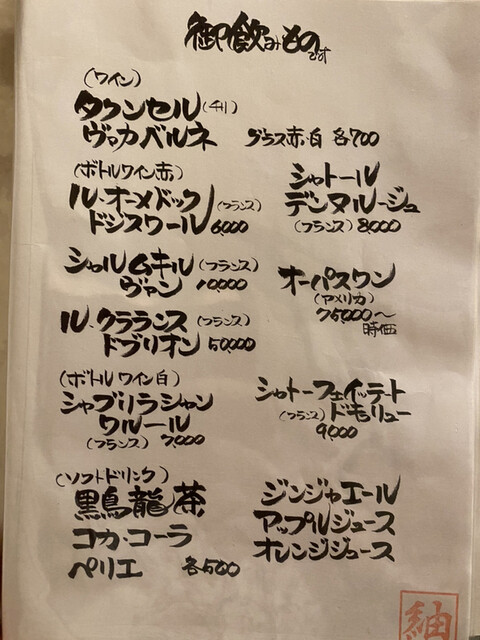 御飲みものです
(ワイン)
タウンセル(チリ)
ヴァカベルネ グラス赤・白 各700
(ボトルワイン赤)
ル・オーメドック(フランス)
ドジスクール 6,000
シャトール
デンヌルージュ
(フランス) 8,000
シャルムキル(フランス)
ヴァン 10,000
オーパスワン
(アメリカ)
75,000〜
時価
ル・クラランス(フランス)
ドブリオン 50,000
(ボトルワイン白)
シャブリラシャン
ワルール
(フランス) 7,000
シャトーフェイッテート
(フランス)ドキョリュー
9,000
(ソフトドリンク)
黒烏龍茶
コカ・コーラ
ペリエ 各500
ジンジャエール
アップルジュース
オレンジジュース
紬